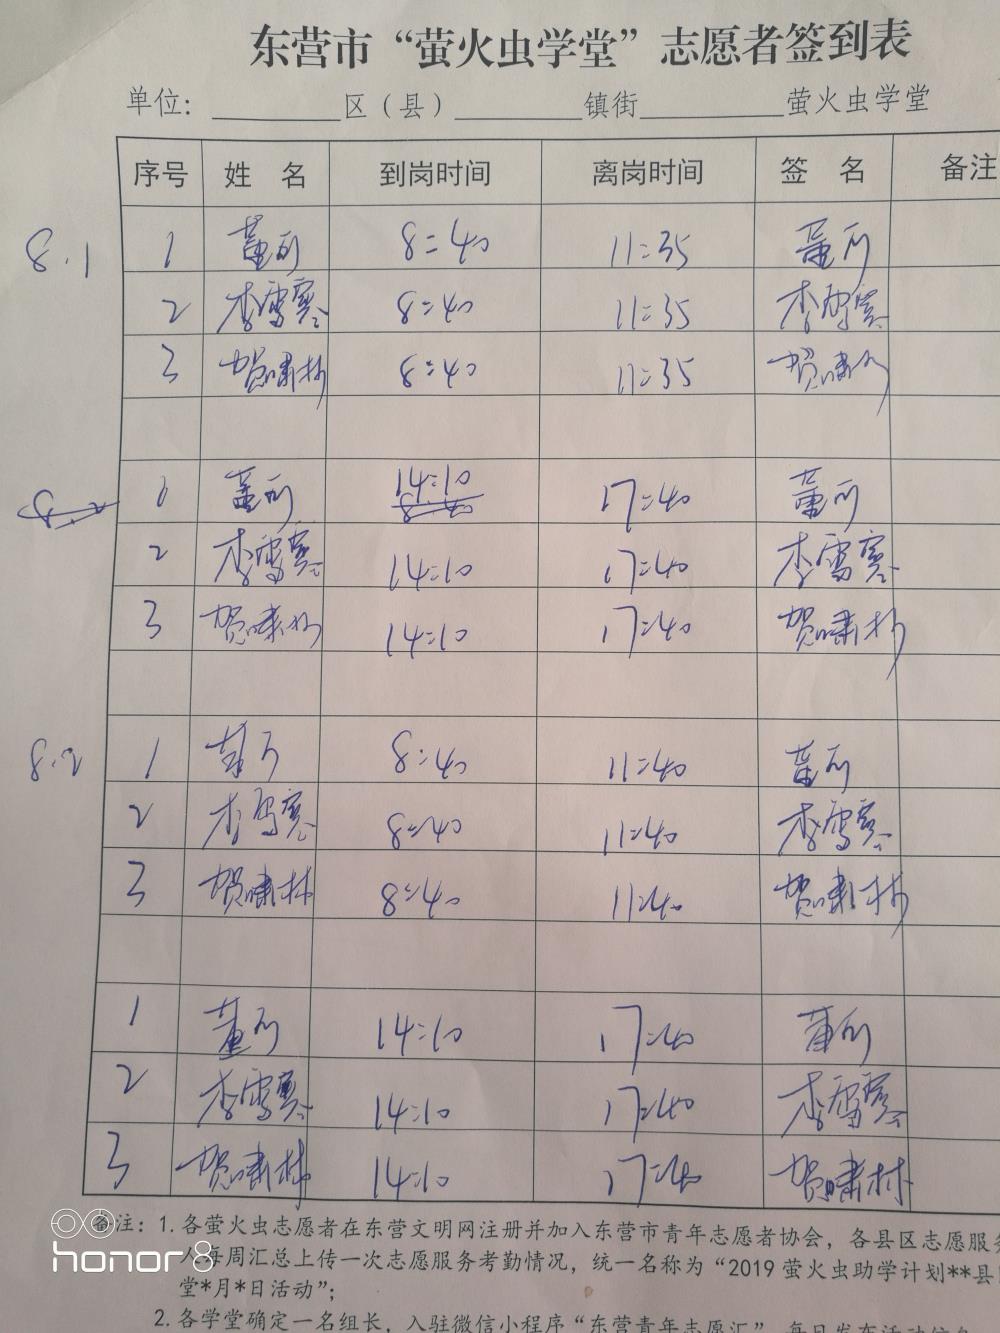 东营市“萤火虫学堂”志愿者签到表
单位: 区（县） 镇街 萤火虫学堂
序号 姓 名 到岗时间 离岗时间 签 名 备注
8.1 1 董 8:40 11:35 董
2 李雪寒 8:40 11:35 李雪寒
3 贺啸林 8:40 11:35 贺啸林
1 董 14:10 17:40 董
2 李雪寒 14:10 17:40 李雪寒
3 贺啸林 14:10 17:40 贺啸林
8.2 1 董 8:40 11:40 董
2 李雪寒 8:40 11:40 李雪寒
3 贺啸林 8:40 11:40 贺啸林
1 董 14:10 17:40 董
2 李雪寒 14:10 17:40 李雪寒
3 贺啸林 14:10 17:40 贺啸林
备注: 1. 各萤火虫志愿者在东营文明网注册并加入东营市青年志愿者协会，各县区志愿服务
人每周汇总上传一次志愿服务考勤情况，统一名称为“2019 萤火虫助学计划**县
堂*月*日活动”;
2. 各学堂确定一名组长，入驻微信小程序“东营青年志愿汇”，每日发布活动信息
honor 8